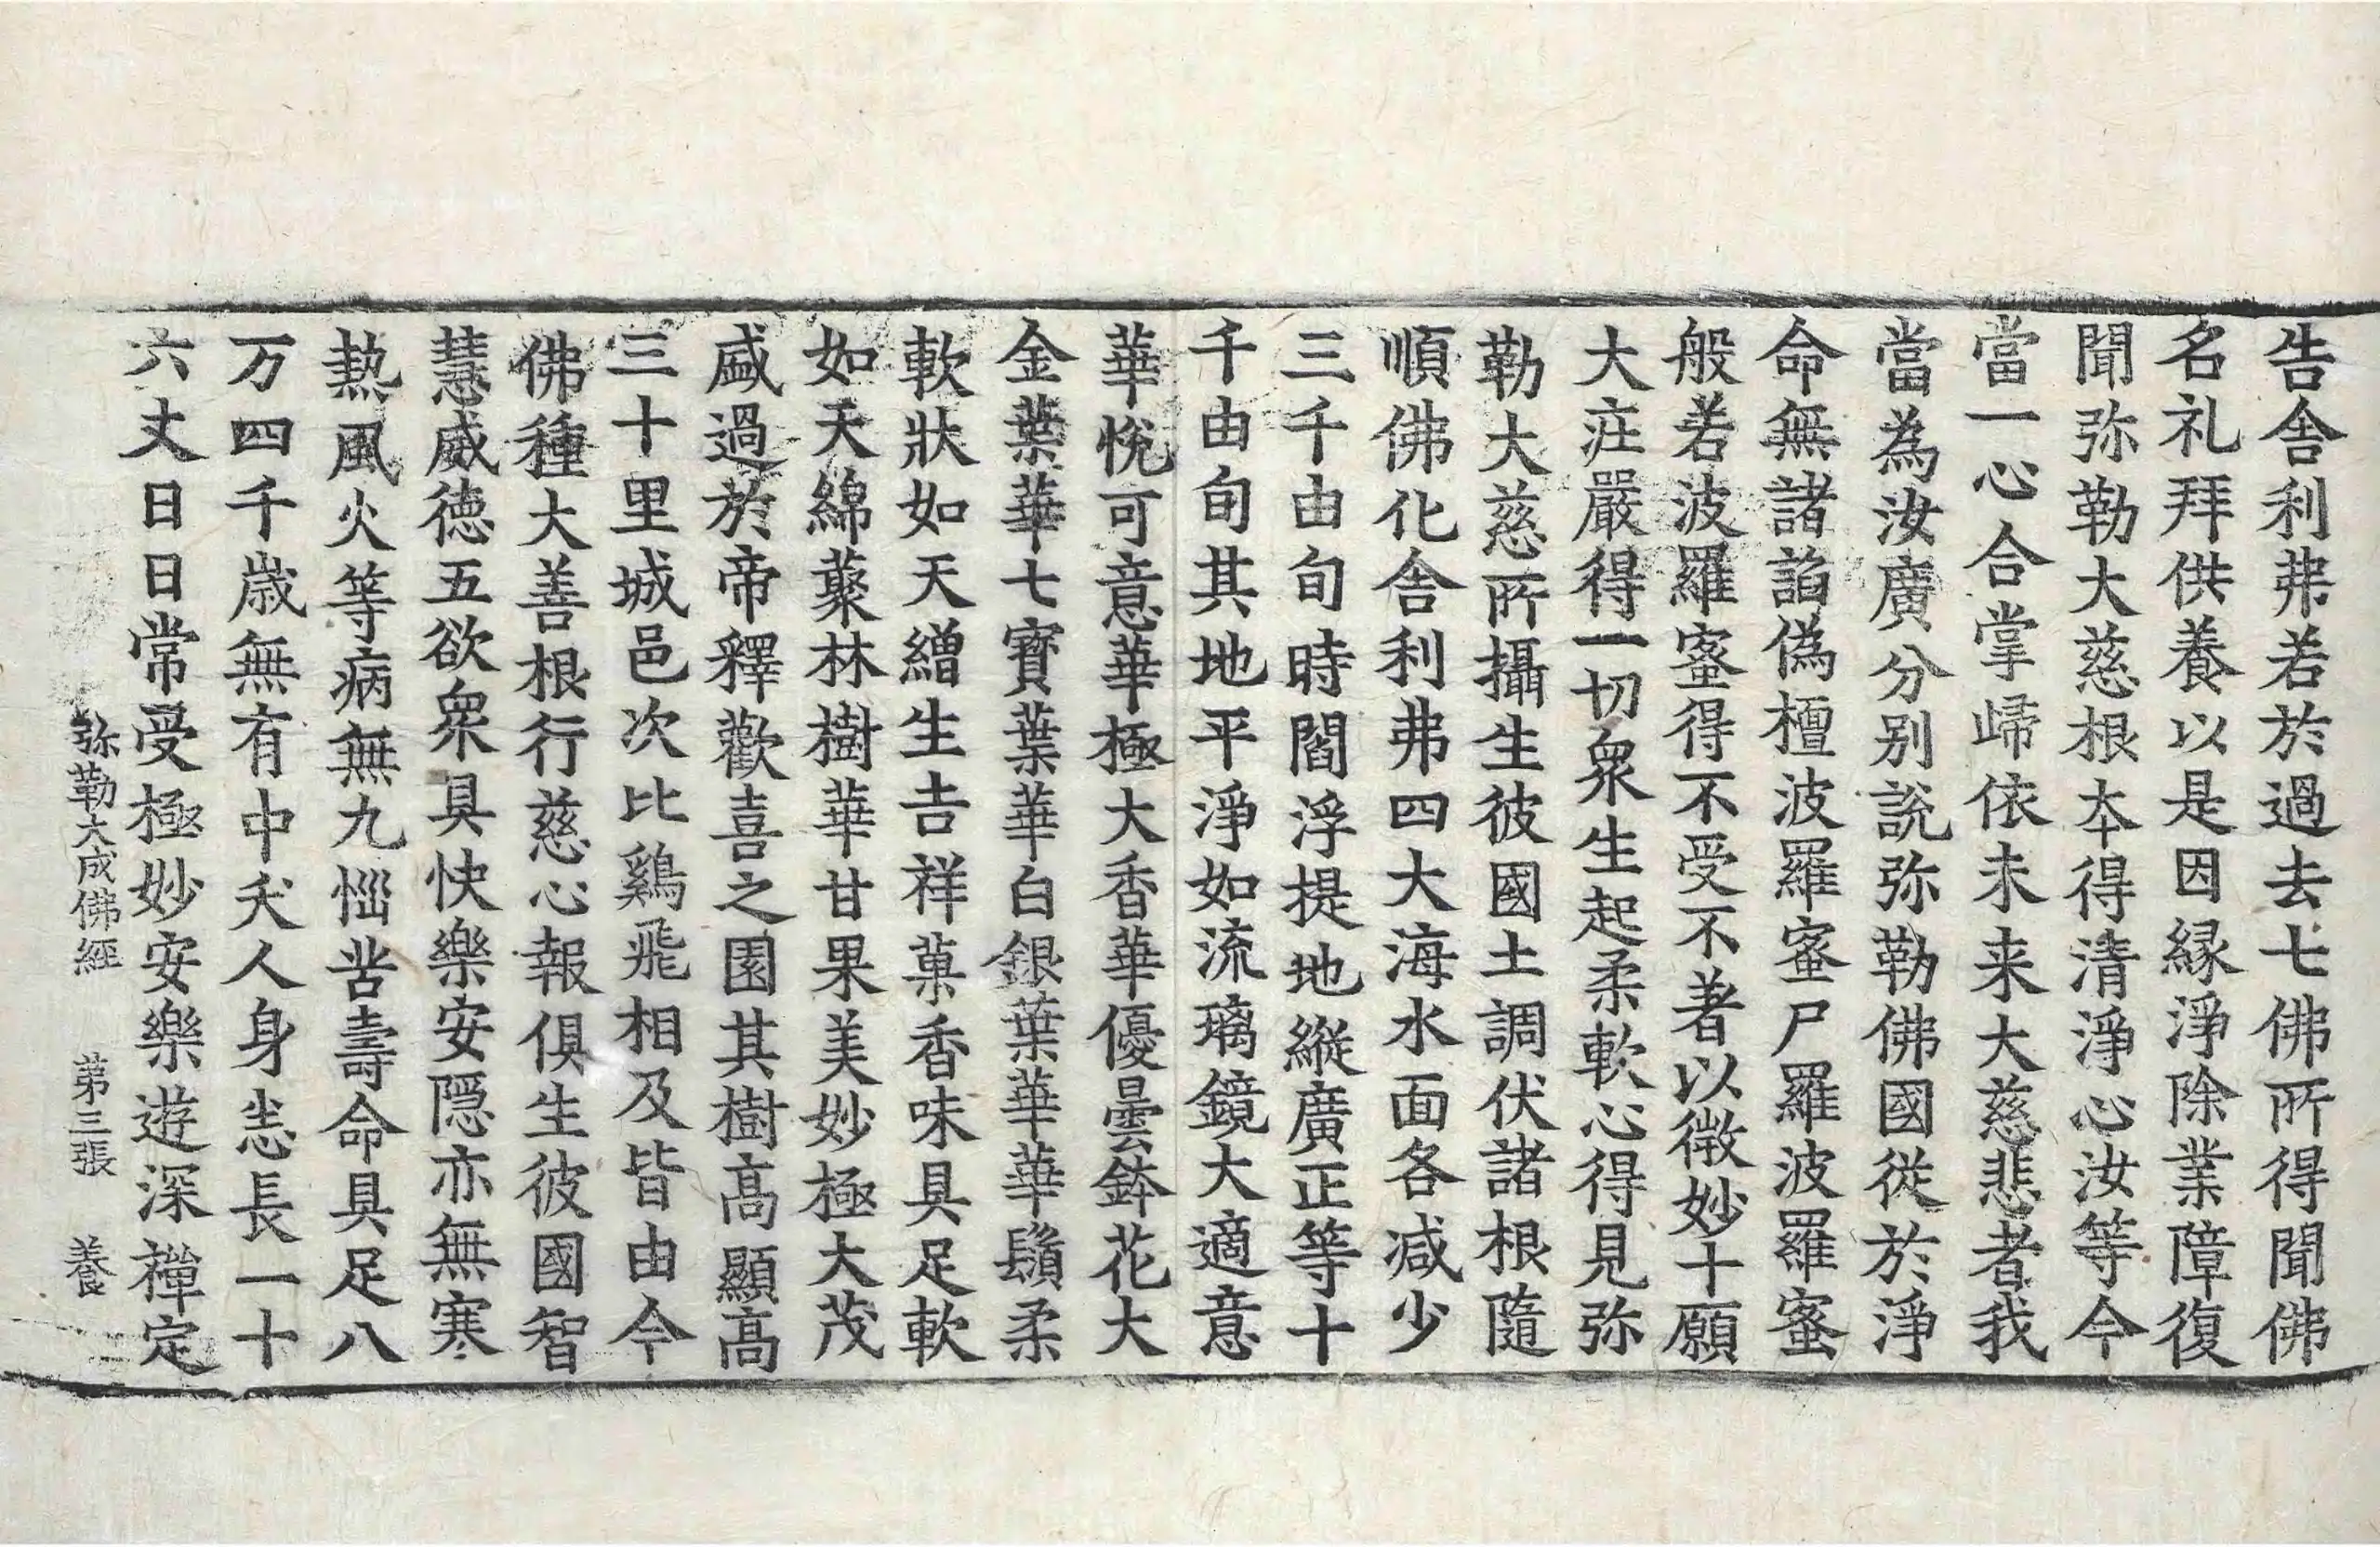 告舍利弗若於過去七佛所得聞佛
名礼拜供養以是因緣淨除業障復
聞弥勒大慈根本得清淨心汝等今
當一心合掌歸依未来大慈悲者我
當為汝廣分別說弥勒佛國從於淨
命無諸諂偽檀波羅蜜尸羅波羅蜜
般若波羅蜜得不受不著以微妙十願
大莊嚴得一切衆生起柔軟心得見弥
勒大慈所攝生彼國土調伏諸根隨
順佛化舍利弗四大海水面各减少
三千由旬時閻浮提地縱廣正等十
千由旬其地平淨如流璃鏡大適意
華悅可意華極大香華優曇鉢花大
金葉華七寶葉華白銀葉華華鬚柔
軟狀如天繒生吉祥菓香味具足軟
如天綿藂林樹華甘果美妙極大茂
盛過於帝釋歡喜之園其樹高顯高
三十里城邑次比鷄飛相及皆由今
佛種大善根行慈心報俱生彼國智
慧威德五欲衆具快樂安隱亦無寒
熱風火等病無九惱苦壽命具足八
万四千歲無有中夭人身悉長一十
六丈日日常受極妙安樂遊深禪定
弥勒大成佛經 第三張 養